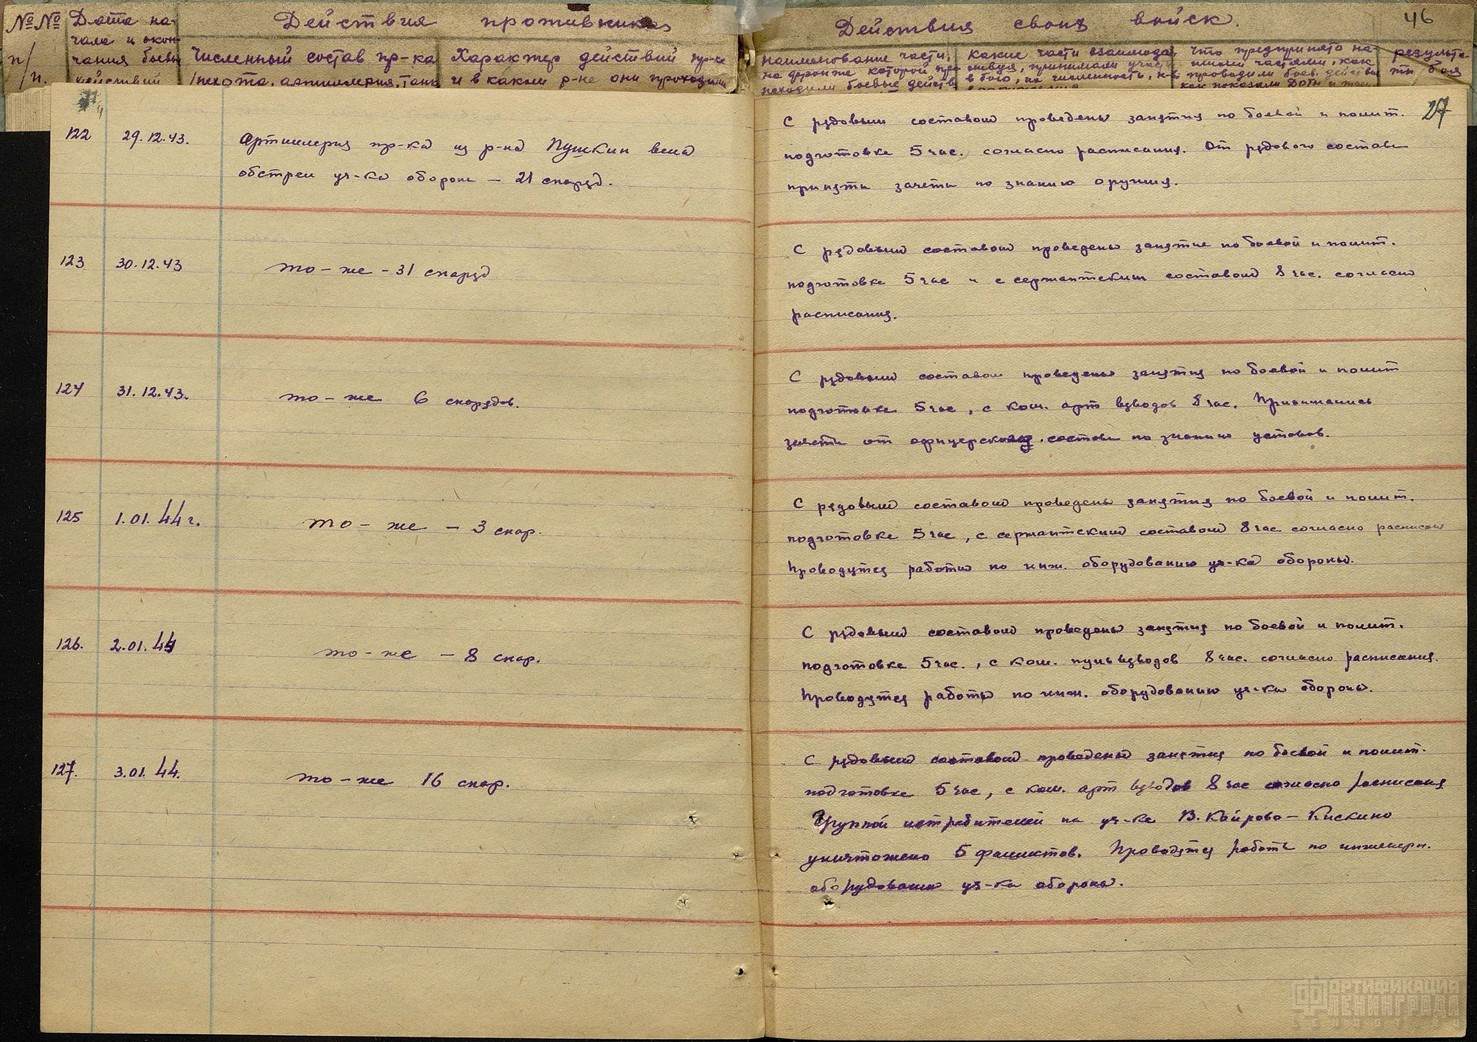 №№ п/п.
Дата на-
чала и окон-
чания боевы
действий
Действия противника
Численный состав пр-ка
/пехота, артиллерия, танк
Характер действий пр-ка
и в каком р-не они проходили
Действия своих войск.
46
наименование части,
на фронте которой про
исходили боевые действ
какие части взаимодей
ствуя, принимали участ
в бою, их численность, н-к
что предпринято на-
шими частями, как
проводили боев. действи
как показали ДОТы и
результа-
ты боя
27
122 29.12.43. Артиллерия пр-ка из р-на Пушкин вела
обстрел уч-ка обороны – 21 снаряд.
С рядовым составом проведены занятия по боевой и полит.
подготовке 5 час. согласно расписания. От рядового состава
приняты зачеты по знанию оружия.
123 30.12.43 то – же – 31 снаряд
С рядовым составом проведены занятие по боевой и полит.
подготовке 5 час и с сержантским составом 8 час. согласно
расписания.
124 31.12.43. то – же 6 снарядов.
С рядовым составом проведены занятия по боевой и полит
подготовке 5 час, с ком. арт взводов 8 час. Принимались
зачеты от офицерского состава по знанию уставов.
125 1.01.44 г. то – же – 3 снар.
С рядовым составом проведены занятия по боевой и полит.
подготовке 5 час, с сержантским составом 8 час согласно расписан
Проводятся работы по инж. оборудованию уч-ка обороны.
126. 2.01.44 то – же – 8 снар.
С рядовым составом проведены занятия по боевой и полит.
подготовке 5 час., с ком. пульвзводов 8 час. согласно расписания.
Проводятся работы по инж. оборудованию уч-ка обороны.
127. 3.01.44. то – же 16 снар.
С рядовым составом проведены занятия по боевой и полит.
подготовке 5 час, с ком. арт взводов 8 час согласно расписания
Группой истребителей на уч-ке В. Койрово – Кискино
уничтожено 5 фашистов. Проводятся работы по инженерн.
оборудованию уч-ка обороны.
ФОРТИФИКАЦИЯ
ЛЕНИНГРАДА